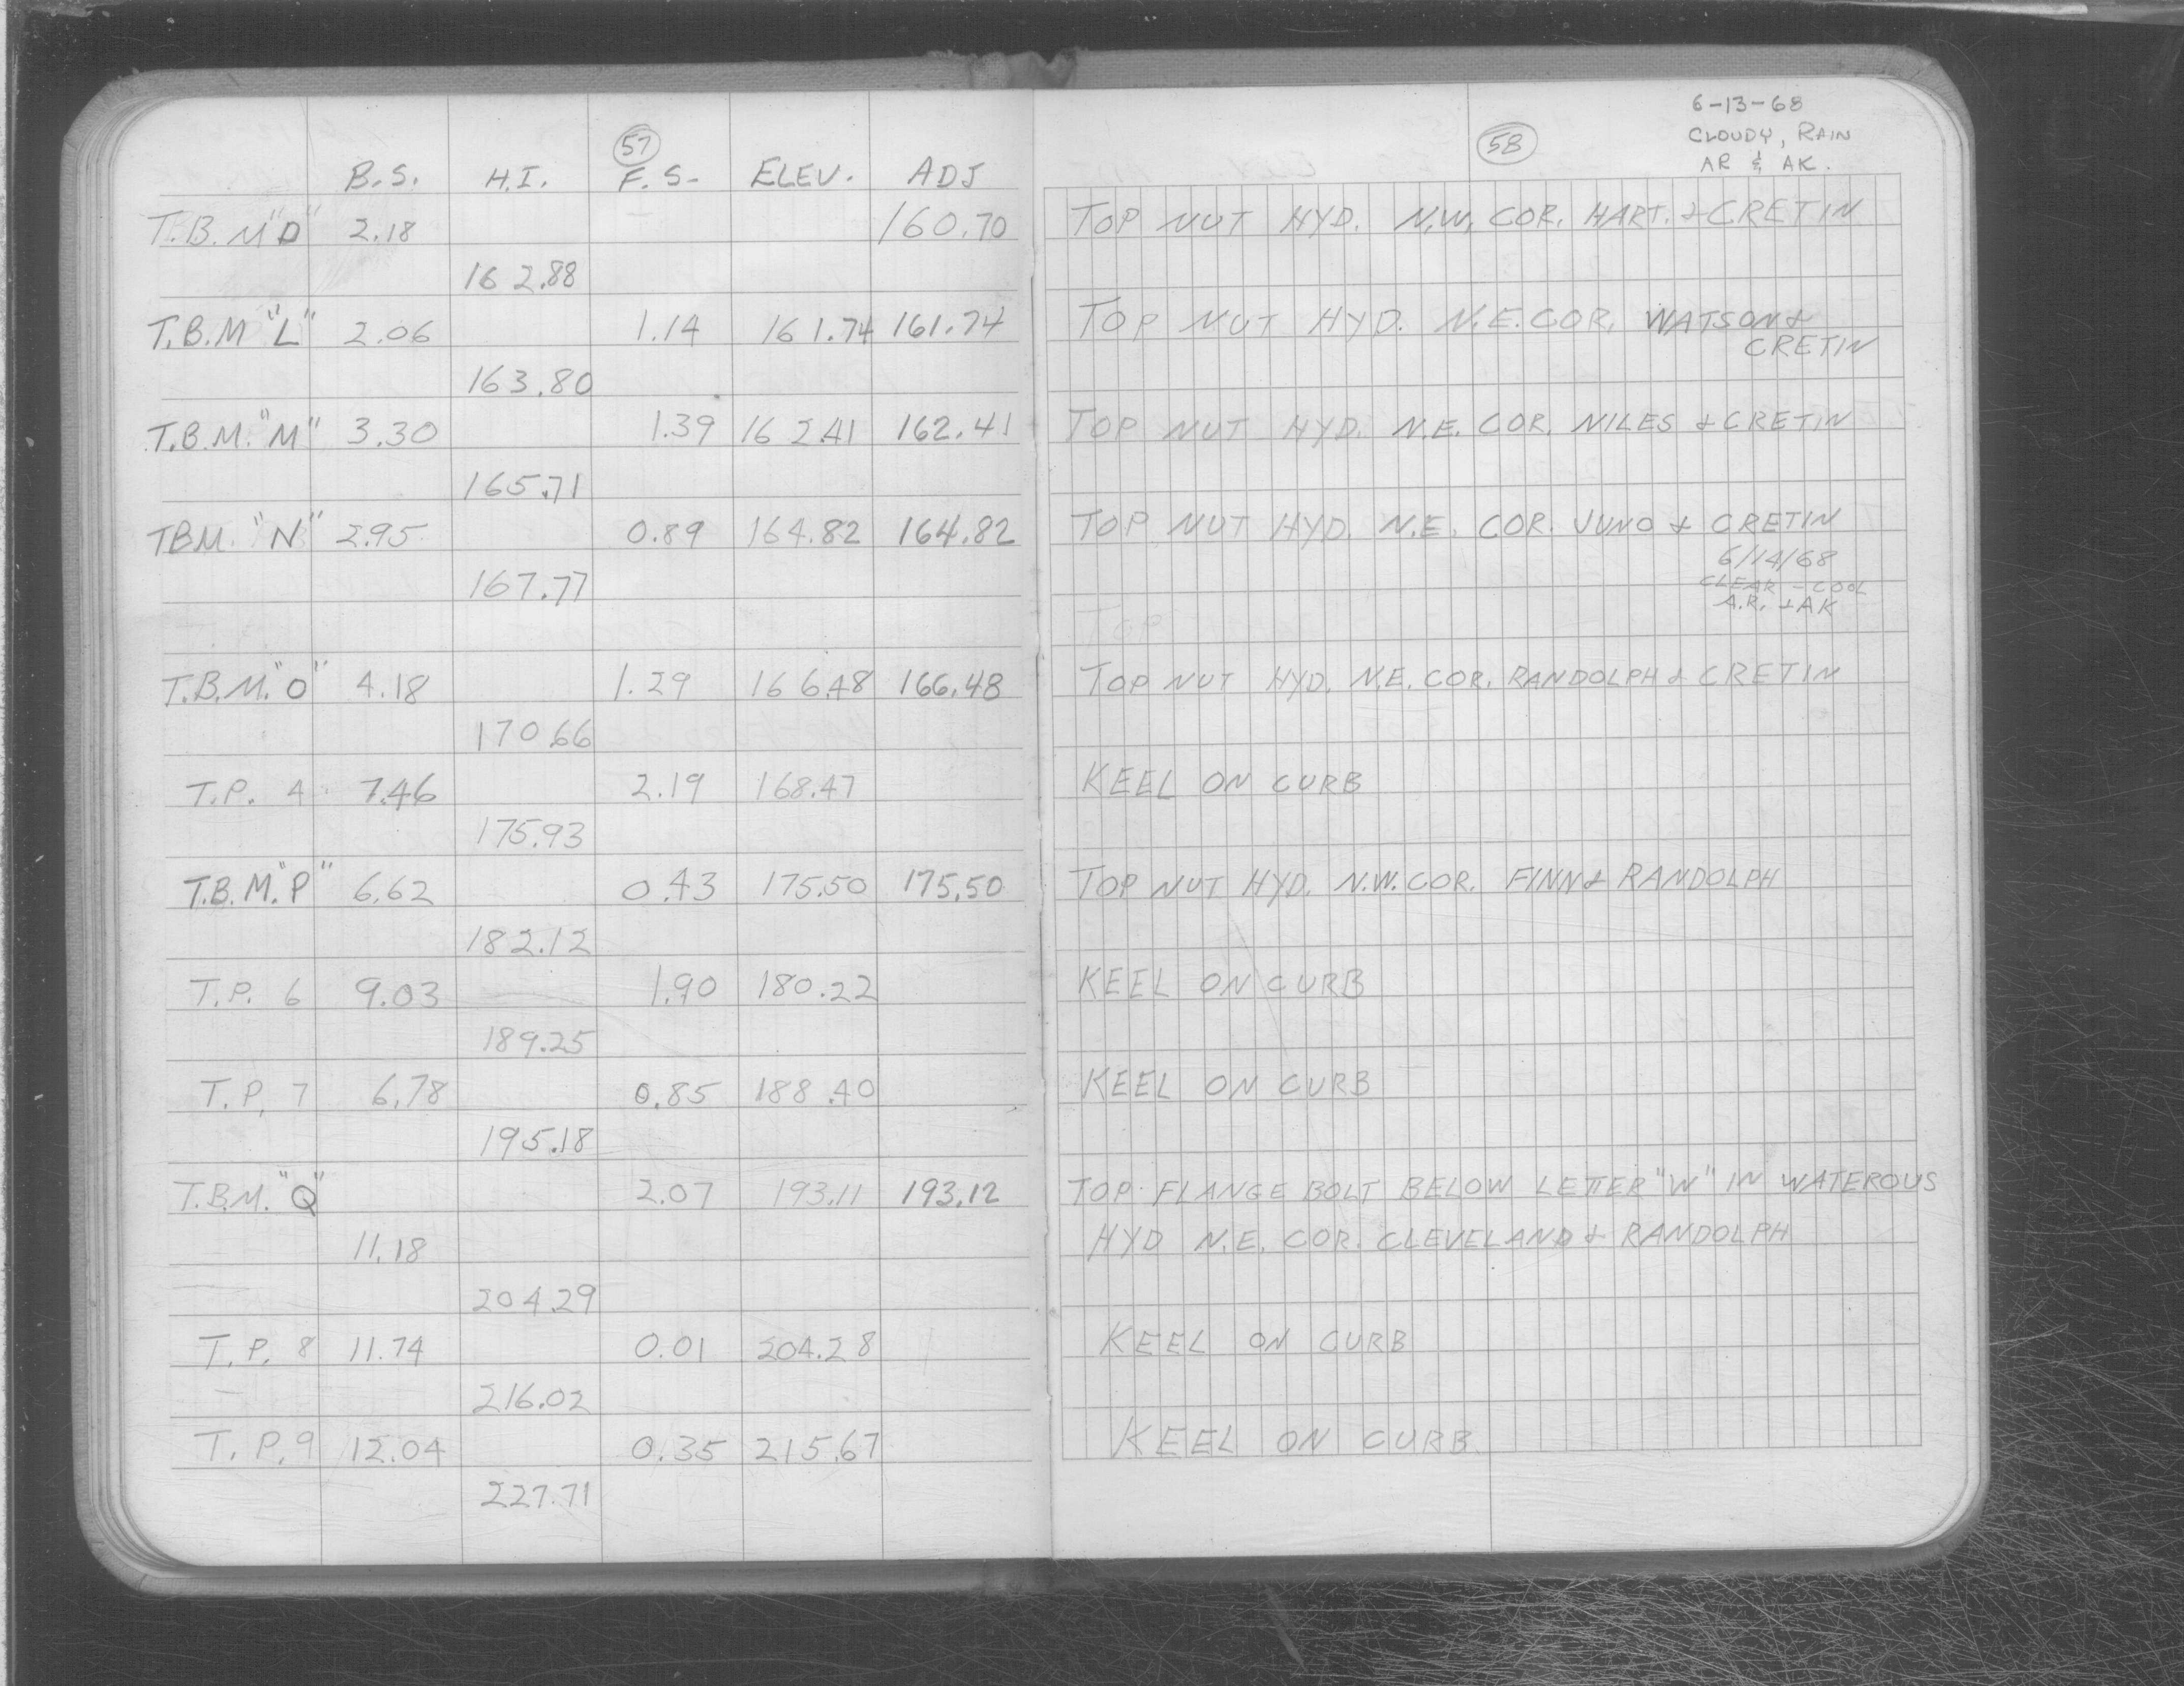 57
B.S. H.I. F.S. ELEV. ADJ
T.B.M "D" 2.18 160.70
162.88
T.B.M "L" 2.06 1.14 161.74 161.74
163.80
T.B.M. "M" 3.30 1.39 162.41 162.41
165.71
TBM. "N" 2.95 0.89 164.82 164.82
167.77
T.B.M. "O" 4.18 1.29 166.48 166.48
170.66
T.P. 4 7.46 2.19 168.47
175.93
T.B.M. "P" 6.62 0.43 175.50 175.50
182.12
T.P. 6 9.03 1.90 180.22
189.25
T.P. 7 6.78 0.85 188.40
195.18
T.B.M. "Q" 2.07 193.11 193.12
11.18
204.29
T.P. 8 11.74 0.01 204.28
216.02
T.P. 9 12.04 0.35 215.67
227.71
58
6-13-68
CLOUDY, RAIN
AR & AK.
TOP NUT HYD. N.W. COR. HART. & CRETIN
TOP NUT HYD. N.E. COR. WATSON &
CRETIN
TOP NUT HYD. N.E. COR. NILES & CRETIN
TOP NUT HYD. N.E. COR. JUNO & CRETIN
6/14/68
CLEAR - COOL
A.R. & AK
TOP
TOP NUT HYD. N.E. COR. RANDOLPH & CRETIN
KEEL ON CURB
TOP NUT HYD. N.W. COR. FINN & RANDOLPH
KEEL ON CURB
KEEL ON CURB
TOP FLANGE BOLT BELOW LETTER "W" IN WATEROUS
HYD N.E. COR. CLEVELAND & RANDOLPH
KEEL ON CURB
KEEL ON CURB